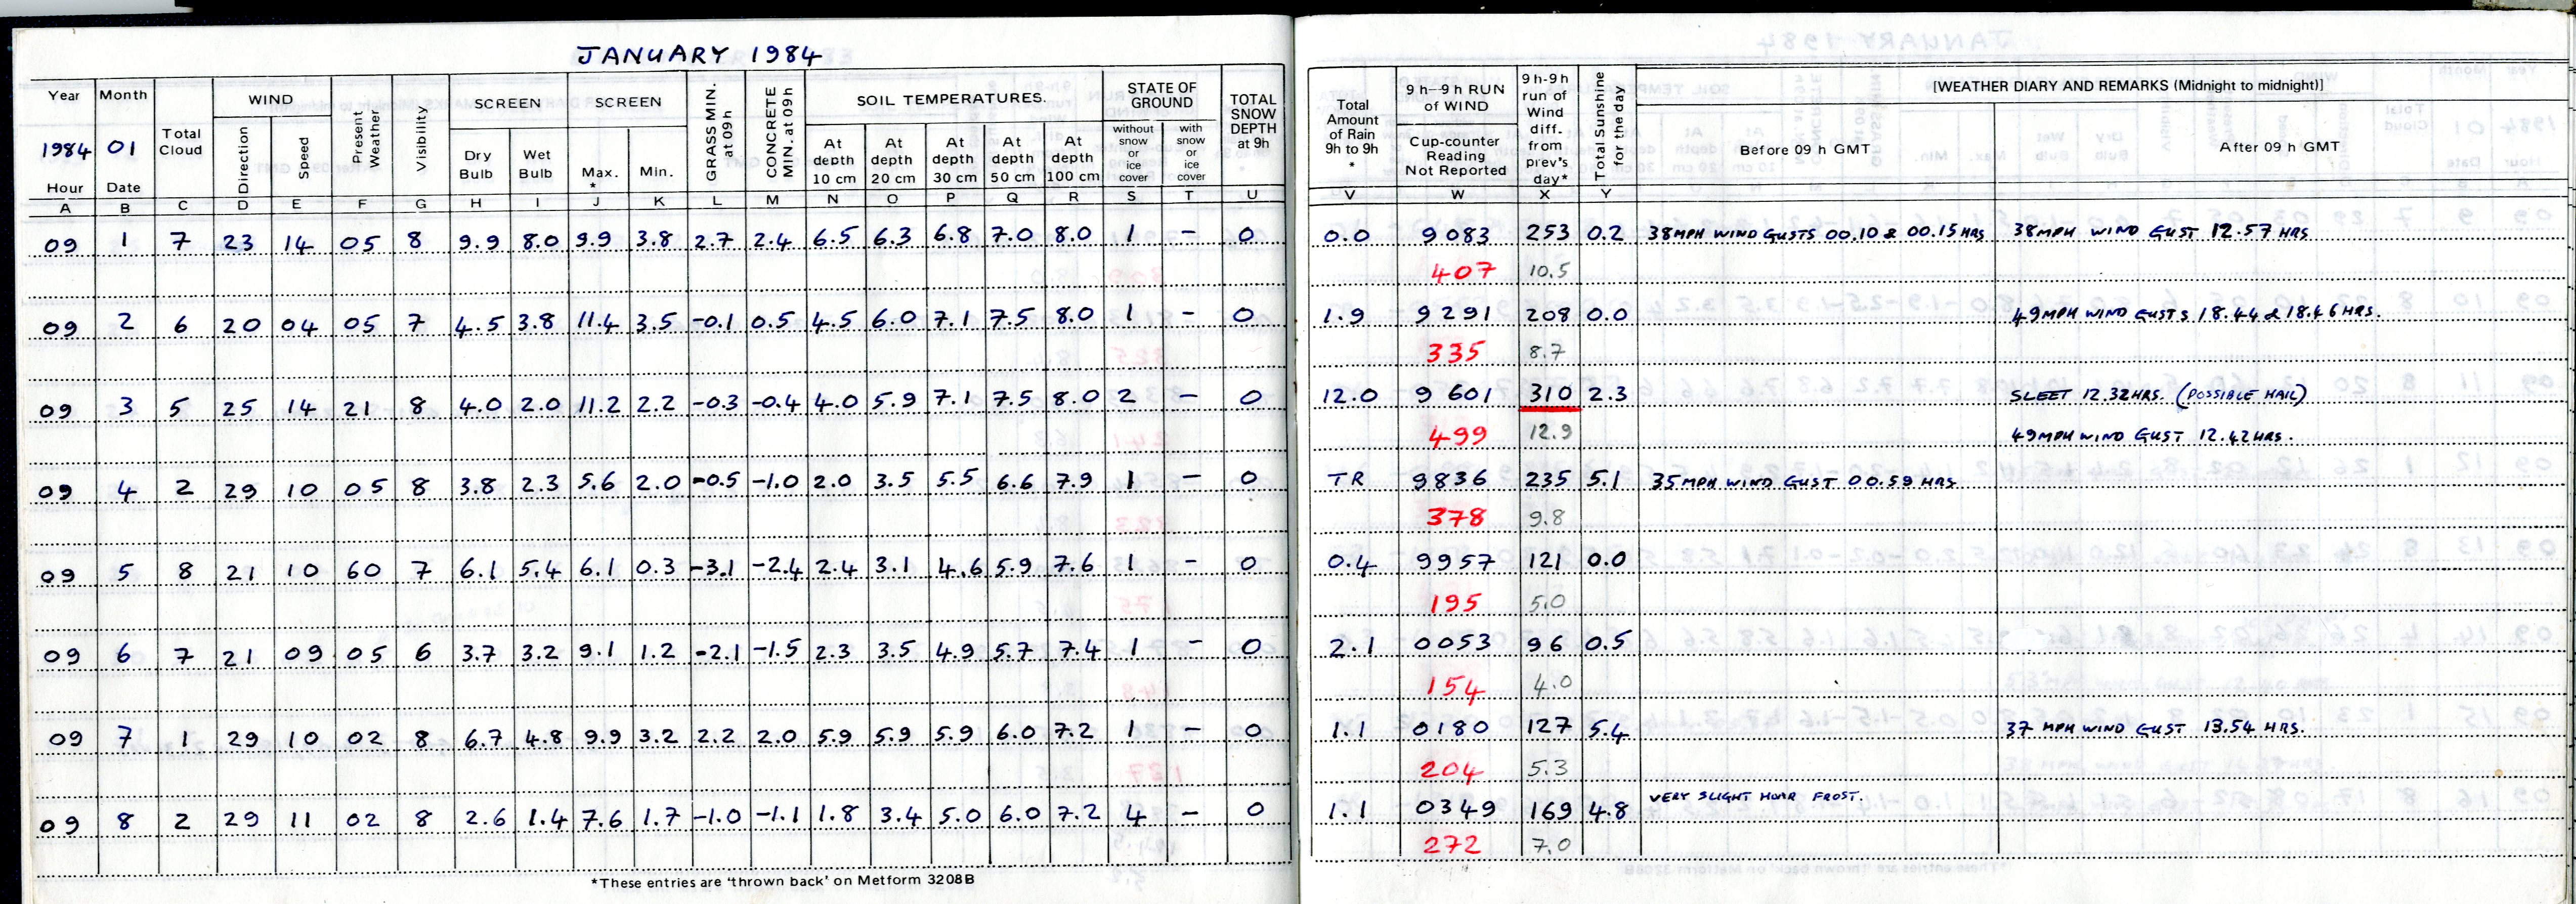 JANUARY 1984
Year Month Total Cloud WIND Direction Speed Present Weather Visibility SCREEN Dry Bulb Wet Bulb SCREEN Max. * Min. GRASS MIN. at 09h CONCRETE MIN. at 09h SOIL TEMPERATURES. At depth 10 cm At depth 20 cm At depth 30 cm At depth 50 cm At depth 100 cm STATE OF GROUND without snow or ice cover with snow or ice cover TOTAL SNOW DEPTH at 9h
1984 01
Hour Date
A B C D E F G H I J K L M N O P Q R S T U
09 1 7 23 14 05 8 9.9 8.0 9.9 3.8 2.7 2.4 6.5 6.3 6.8 7.0 8.0 1 – 0
09 2 6 20 04 05 7 4.5 3.8 11.4 3.5 -0.1 0.5 4.5 6.0 7.1 7.5 8.0 1 – 0
09 3 5 25 14 21 8 4.0 2.0 11.2 2.2 -0.3 -0.4 4.0 5.9 7.1 7.5 8.0 2 – 0
09 4 2 29 10 05 8 3.8 2.3 5.6 2.0 -0.5 -1.0 2.0 3.5 5.5 6.6 7.9 1 – 0
09 5 8 21 10 60 7 6.1 5.4 6.1 0.3 -3.1 -2.4 2.4 3.1 4.6 5.9 7.6 1 – 0
09 6 7 21 09 05 6 3.7 3.2 9.1 1.2 -2.1 -1.5 2.3 3.5 4.9 5.7 7.4 1 – 0
09 7 1 29 10 02 8 6.7 4.8 9.9 3.2 2.2 2.0 5.9 5.9 5.9 6.0 7.2 1 – 0
09 8 2 29 11 02 8 2.6 1.4 7.6 1.7 -1.0 -1.1 1.8 3.4 5.0 6.0 7.2 4 – 0
*These entries are 'thrown back' on Metform 3208B
Total Amount of Rain 9h to 9h * 9 h—9 h RUN of WIND Cup-counter Reading Not Reported 9 h-9 h run of Wind diff. from prev's day* Total Sunshine for the day [WEATHER DIARY AND REMARKS (Midnight to midnight)]
Before 09 h GMT After 09 h GMT
V W X Y
0.0 9083 253 0.2 38MPH WIND GUSTS 00.10 & 00.15 HRS 38MPH WIND GUST 12.57 HRS
407 10.5
1.9 9291 208 0.0 49MPH WIND GUSTS 18.44 & 18.46 HRS.
335 8.7
12.0 9601 310 2.3 SLEET 12.32HRS. (POSSIBLE HAIL)
499 12.9 49MPH WIND GUST 12.42HRS.
TR 9836 235 5.1 35MPH WIND GUST 00.59 HRS
378 9.8
0.4 9957 121 0.0
195 5.0
2.1 0053 96 0.5
154 4.0
1.1 0180 127 5.4 37 MPH WIND GUST 13.54 HRS.
204 5.3
1.1 0349 169 4.8 VERY SLIGHT HOAR FROST.
272 7.0